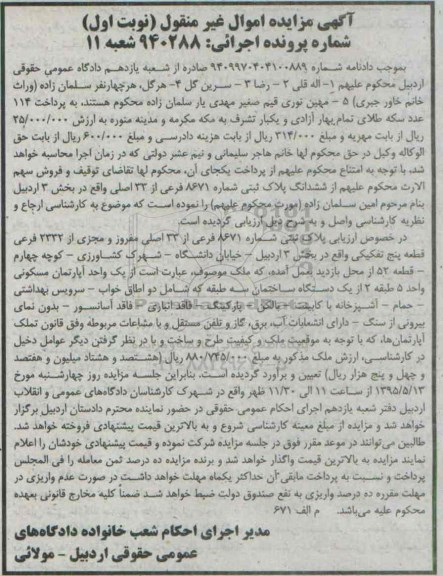 آگهی مزایده اموال غیر منقول (نوبت اول)
شماره پرونده اجرائی: ۹۴۰۲۸۸ شعبه ۱۱
بموجب دادنامه شماره ۹۴۰۹۹۷۰۴۰۴۱۰۰۸۸۹ صادره از شعبه یازدهم دادگاه عمومی حقوقی
اردبیل محکوم علیهم ۱- اله قلی ۲- رضا ۳- سرین گل ۴- هرگل، هرچهارنفر سلمان زاده (وراث
خانم خاور جبری) ۵ - مهین نوری قیم صغیر مهدی یار سلمان زاده محکوم هستند، به پرداخت ۱۱۴
عدد سکه طلای تمام بهار آزادی و یکبار تشرف به مکه مکرمه و مدینه منوره به ارزش ۲۵/۰۰۰/۰۰۰
ریال از بابت مهریه و مبلغ ۳۱۴/۰۰۰ ریال از بابت هزینه دادرسی و مبلغ ۶۰۰/۰۰۰ ریال از بابت حق
الوکاله وکیل در حق محکوم لها خانم هاجر سلیمانی و نیم عشر دولتی که در زمان اجرا محاسبه خواهد
شد، با توجه به امتناع محکوم علیهم از پرداخت یکجای آن، محکوم لها تقاضای توقیف و فروش سهم
الارث محکوم علیهم از ششدانگ پلاک ثبتی شماره ۸۶۷۱ فرعی از ۳۳ اصلی واقع در بخش ۳ اردبیل
بنام مرحوم امین سلمان زاده (مورث محکوم علیهم) را نموده است که موضوع به کارشناسی ارجاع و
نظریه کارشناسی واصل و به شرح ذیل ارزیابی گردیده است.
در خصوص ارزیابی پلاک ثبتی شماره ۸۶۷۱ فرعی از ۳۳ اصلی مفروز و مجزی از ۲۳۳۲ فرعی
قطعه پنج تفکیکی واقع در بخش ۳ اردبیل - خیابان دانشگاه - شهرک کشاورزی - کوچه چهارم
- قطعه ۵۲ از محل بازدید بعمل آمده، که ملک موصوف، عبارت است از یک واحد آپارتمان مسکونی
واحد ۵ طبقه ۲ از یک دستگاه ساختمان سه طبقه که شامل دو اطاق خواب - سرویس بهداشتی
- حمام - آشپزخانه با کابینت - بالکن - پارکینگ - فاقد انباری - فاقد آسانسور - بدون نمای
بیرونی از سنگ - دارای انشعابات آب، برق، گاز و تلفن مستقل و با مشاعات مربوطه وفق قانون تملک
آپارتمان‌ها، که با توجه به موقعیت ملک و کیفیت طرح و ساخت و با در نظر گرفتن دیگر عوامل دخیل
در کارشناسی، ارزش ملک مذکور به مبلغ ۸۸۰/۷۴۵/۰۰۰ ریال (هشتصد و هشتاد میلیون و هفتصد
و چهل و پنج هزار ریال) تعیین و برآورد گردیده است. بنابراین جلسه مزایده روز چهارشنبه مورخ
۱۳۹۵/۵/۱۳ از ساعت ۱۱ الی ۱۱/۳۰ ظهر واقع در شهرک کارشناسان دادگاه‌های عمومی و انقلاب
اردبیل دفتر شعبه یازدهم اجرای احکام عمومی حقوقی در حضور نماینده محترم دادستان اردبیل برگزار
خواهد شد و مزایده از مبلغ معینه کارشناسی شروع و به بالاترین قیمت پیشنهادی فروخته خواهد شد.
طالبین می‌توانند در موعد مقرر فوق در جلسه مزایده شرکت نموده و قیمت پیشنهادی خودشان را اعلام
نمایند مزایده به بالاترین قیمت واگذار خواهد شد و برنده مزایده ده درصد ثمن معامله را فی المجلس
پرداخت و نسبت به پرداخت مابقی آن حداکثر یکماه مهلت خواهد داشت در صورت عدم واریزی در
مهلت مقرره ده درصد واریزی به نفع صندوق دولت ضبط خواهد شد ضمناً کلیه مخارج قانونی بعهده
محکوم علیه می‌باشد. م الف ۶۷۱
مدیر اجرای احکام شعب خانواده دادگاه‌های
عمومی حقوقی اردبیل - مولائی